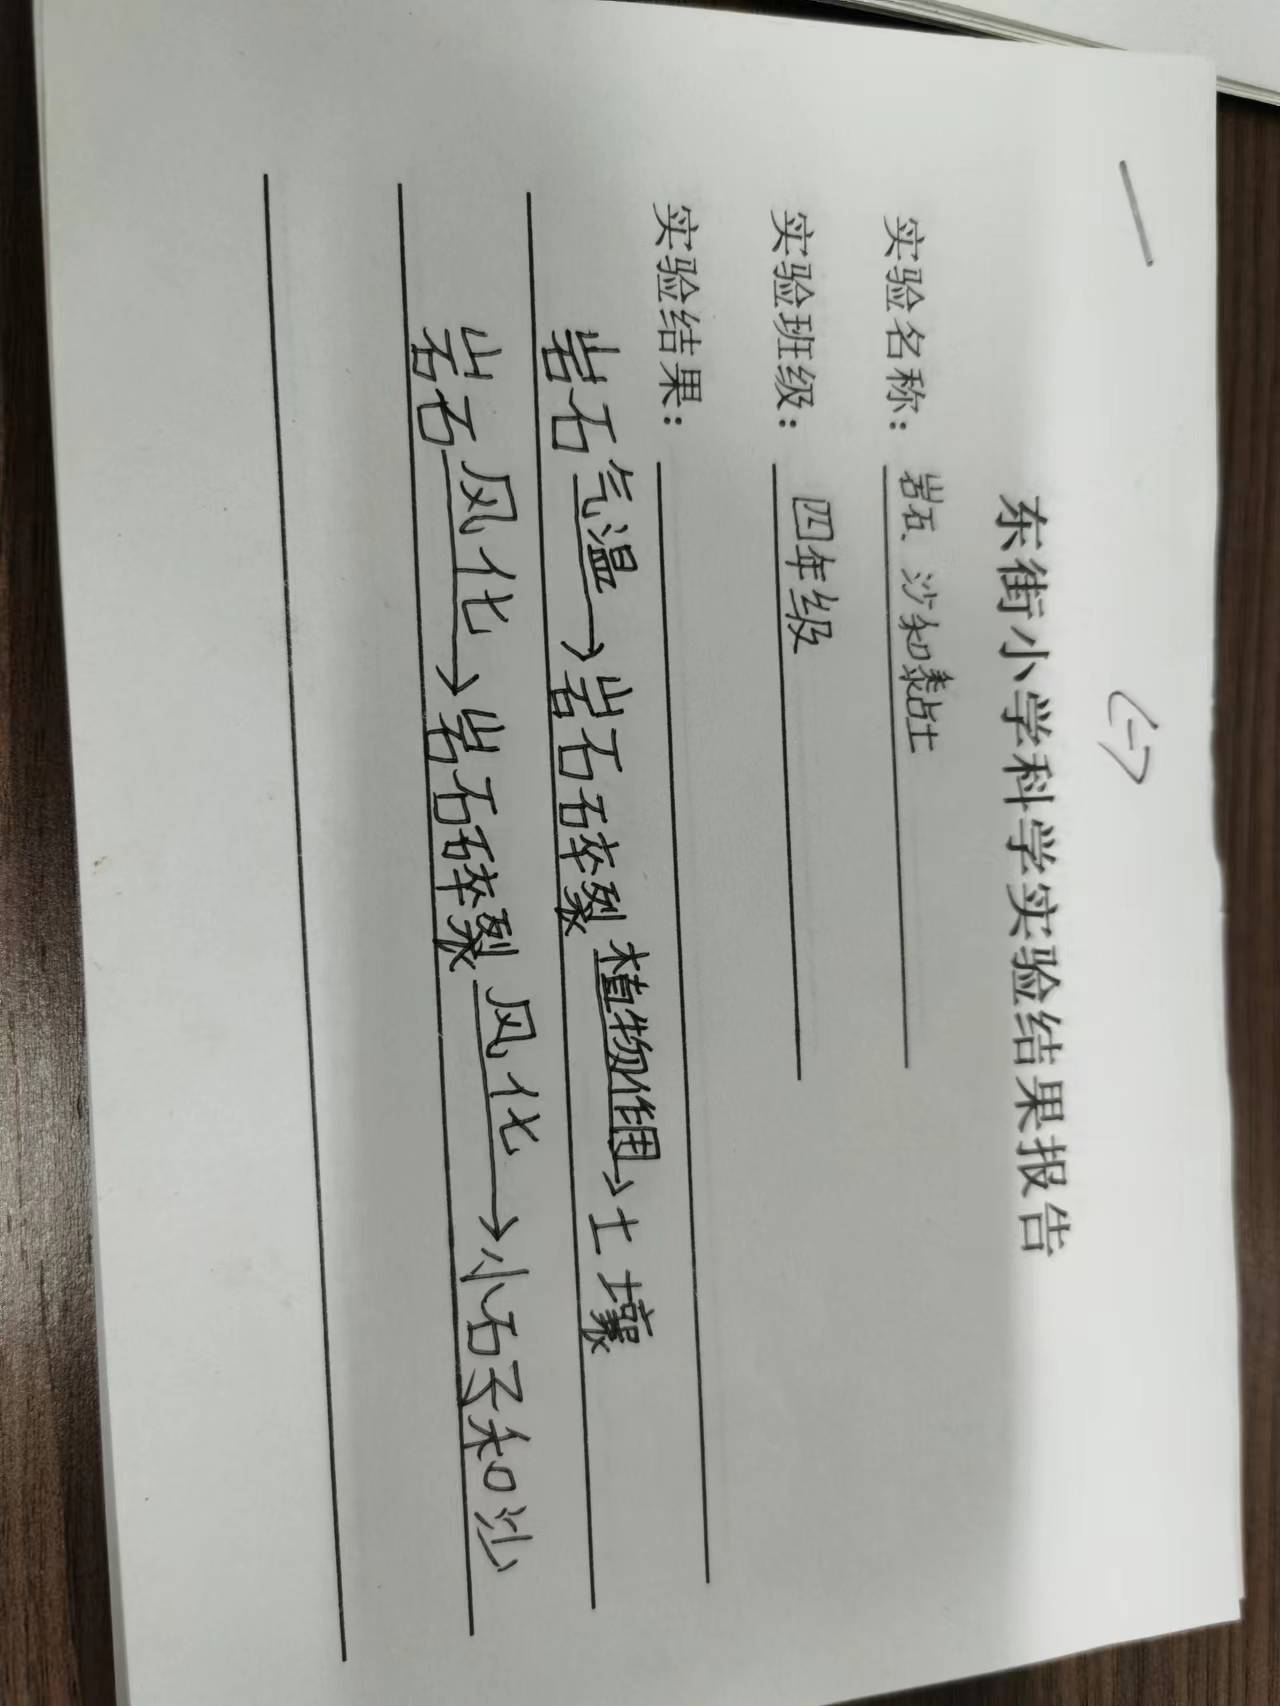 (一)
东街小学科学实验结果报告
实验名称：岩石、沙和黏土
实验班级：四年级
实验结果：
岩石气温→岩石碎裂植物作用→土壤
岩石风化→岩石碎裂风化→小石子和沙